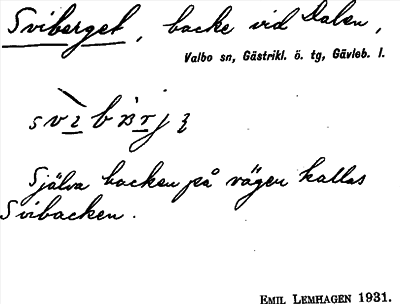 Sviberget, backe vid Dalen,
Valbo sn, Gästrikl. ö. tg, Gävleb. l.
Själva backen på vägen kallas
Svibacken.
EMIL LEMHAGEN 1931.